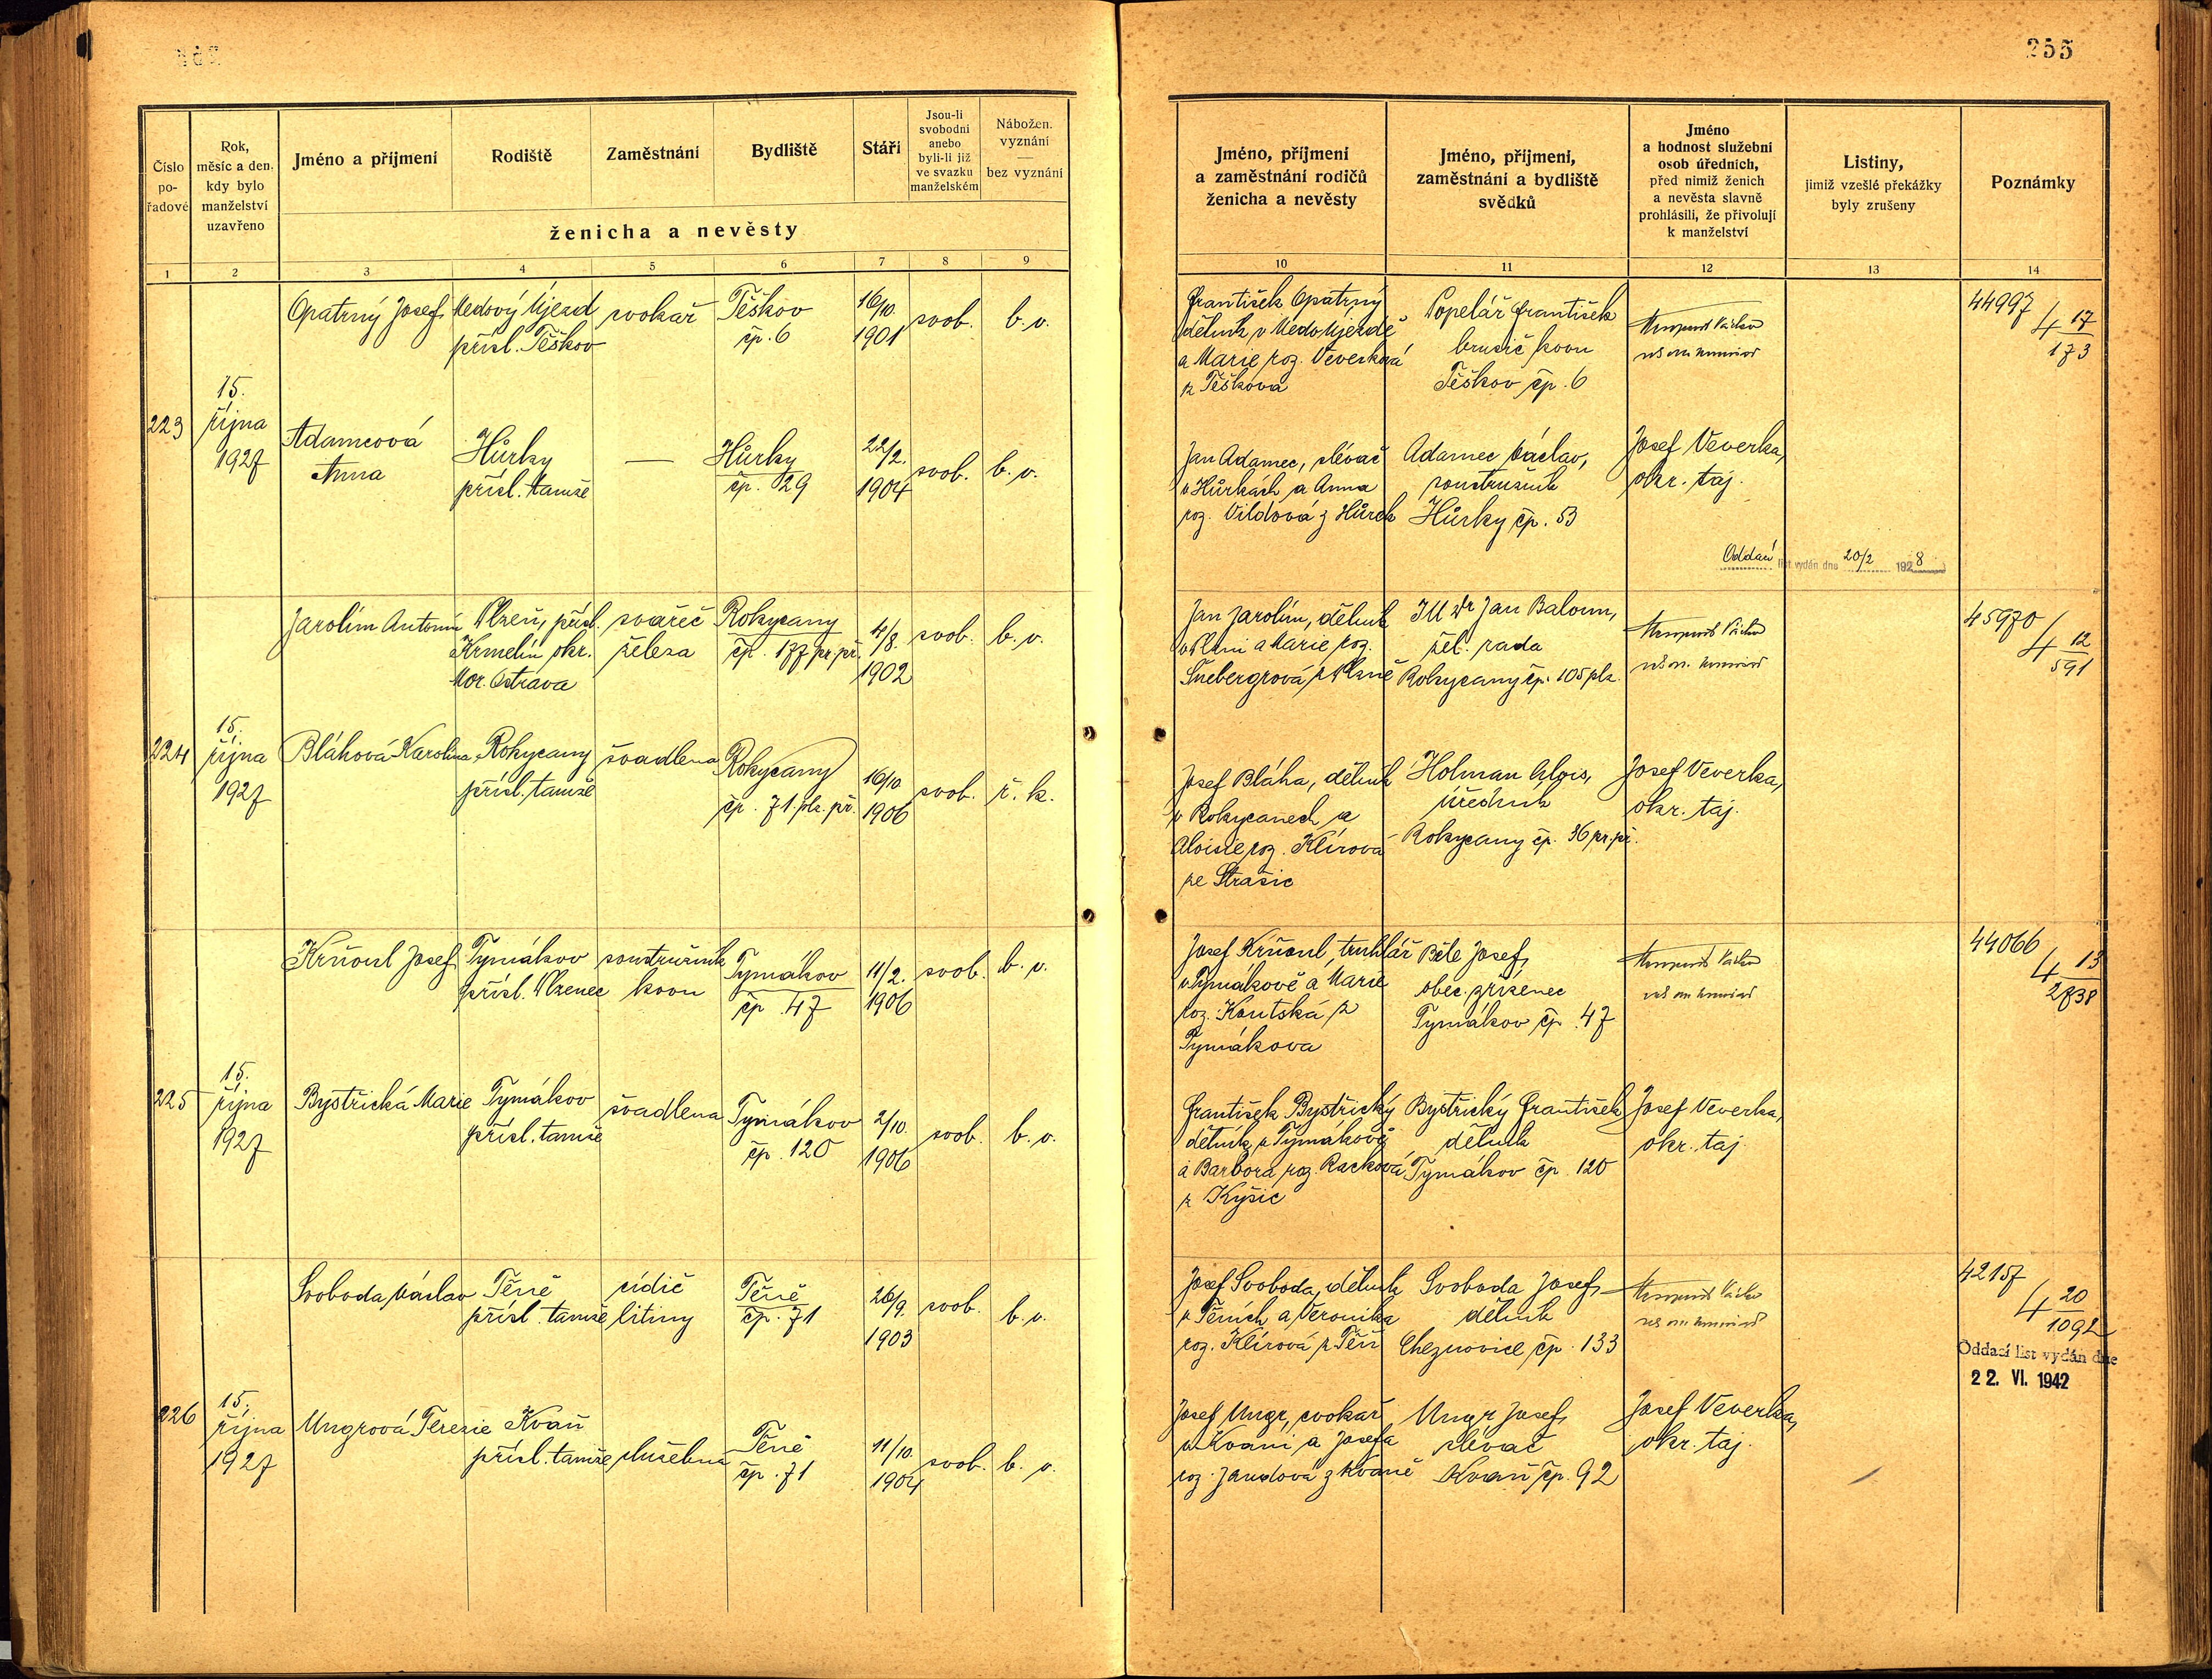 255
Číslo
po-
řadové
Rok,
měsíc a den,
kdy bylo
manželství
uzavřeno
Jméno a příjmení
Rodiště
Zaměstnání
Bydliště
Stáří
Jsou-li
svobodni
anebo
byli-li již
ve svazku
manželském
Nábožen.
vyznání
—
bez vyznání
ženicha a nevěsty
1 2 3 4 5 6 7 8 9
Jméno, příjmení
a zaměstnání rodičů
ženicha a nevěsty
Jméno, příjmení,
zaměstnání a bydliště
svědků
Jméno
a hodnost služební
osob úředních,
před nimiž ženich
a nevěsta slavně
prohlásili, že přivolují
k manželství
Listiny,
jimiž vzešlé překážky
byly zrušeny
Poznámky
10 11 12 13 14
223
15.
října
1927
Opatrný Josef
Medový Újezd
přísl. Těškov
cvokař
Těškov
čp. 6
16/10.
1901
svob.
b. v.
František Opatrný
dělník v Medo Újezdě
a Marie roz. Veverková
z Těškova
Popelář František
brusič kovu
Těškov čp. 6
44997
4 17
173
Adamcová
Anna
Hůrky
přísl. tamže
—
Hůrky
čp. 29
22/2.
1904
svob.
b. v.
Jan Adamec, slévač
v Hůrkách a Anna
roz. Vildová z Hůrek
Adamec Václav,
soustružník
Hůrky čp. 53
Josef Veverka,
okr. taj.
Oddací list vydán dne 20/2 1928
224
15.
října
1927
Jarolím Antonín
Plzeň, přísl.
Krmelín okr.
Mor. Ostrava
svářeč
železa
Rokycany
čp. 177 pr. př.
4/8.
1902
svob.
b. v.
Jan Jarolím, dělník
v Plzni a Marie roz.
Šnebergrová z Plzně
JUDr Jan Baloun,
žel. rada
Rokycany čp. 105 plz.
45970
4 12
591
Bláhová Karolina
Rokycany
přísl. tamže
švadlena
Rokycany
čp. 71 plz. př.
16/10
1906
svob.
ř. k.
Josef Bláha, dělník
v Rokycanech a
Aloisie roz. Klírová
ze Strašic
Holman Alois,
úředník
Rokycany čp. 36 pr. př.
Josef Veverka,
okr. taj.
225
15.
října
1927
Krňoul Josef
Tymákov
přísl. Plzenec
soustružník
kovu
Tymákov
čp. 47
11/2.
1906
svob.
b. v.
Josef Krňoul, truhlář
v Tymákově a Marie
roz. Koutská z
Tymákova
Běle Josef,
obec. zřízenec
Tymákov čp. 47
44066
4 13
2738
Bystřická Marie
Tymákov
přísl. tamže
švadlena
Tymákov
čp. 120
2/10.
1906
svob.
b. v.
František Bystřický
dělník v Tymákově
a Barbora roz. Racková
z Kyšic
Bystřický František
dělník
Tymákov čp. 120
Josef Veverka,
okr. taj.
226
15.
října
1927
Svoboda Václav
Těně
přísl. tamže
cídič
litiny
Těně
čp. 71
26/9.
1903
svob.
b. v.
Josef Svoboda, dělník
v Těních a Veronika
roz. Klírová z Těň
Svoboda Josef,
dělník
Cheznovice čp. 133
42157
4 20
1092
Oddací list vydán dne
22. VI. 1942
Ungrová Terezie
Kvaň
přísl. tamže
služebná
Těně
čp. 71
11/10.
1904
svob.
b. v.
Josef Ungr, cvokař
v Kvani a Josefa
roz. Jandová z Kvaně
Ungr Josef,
slévač
Kvaň čp. 92
Josef Veverka,
okr. taj.